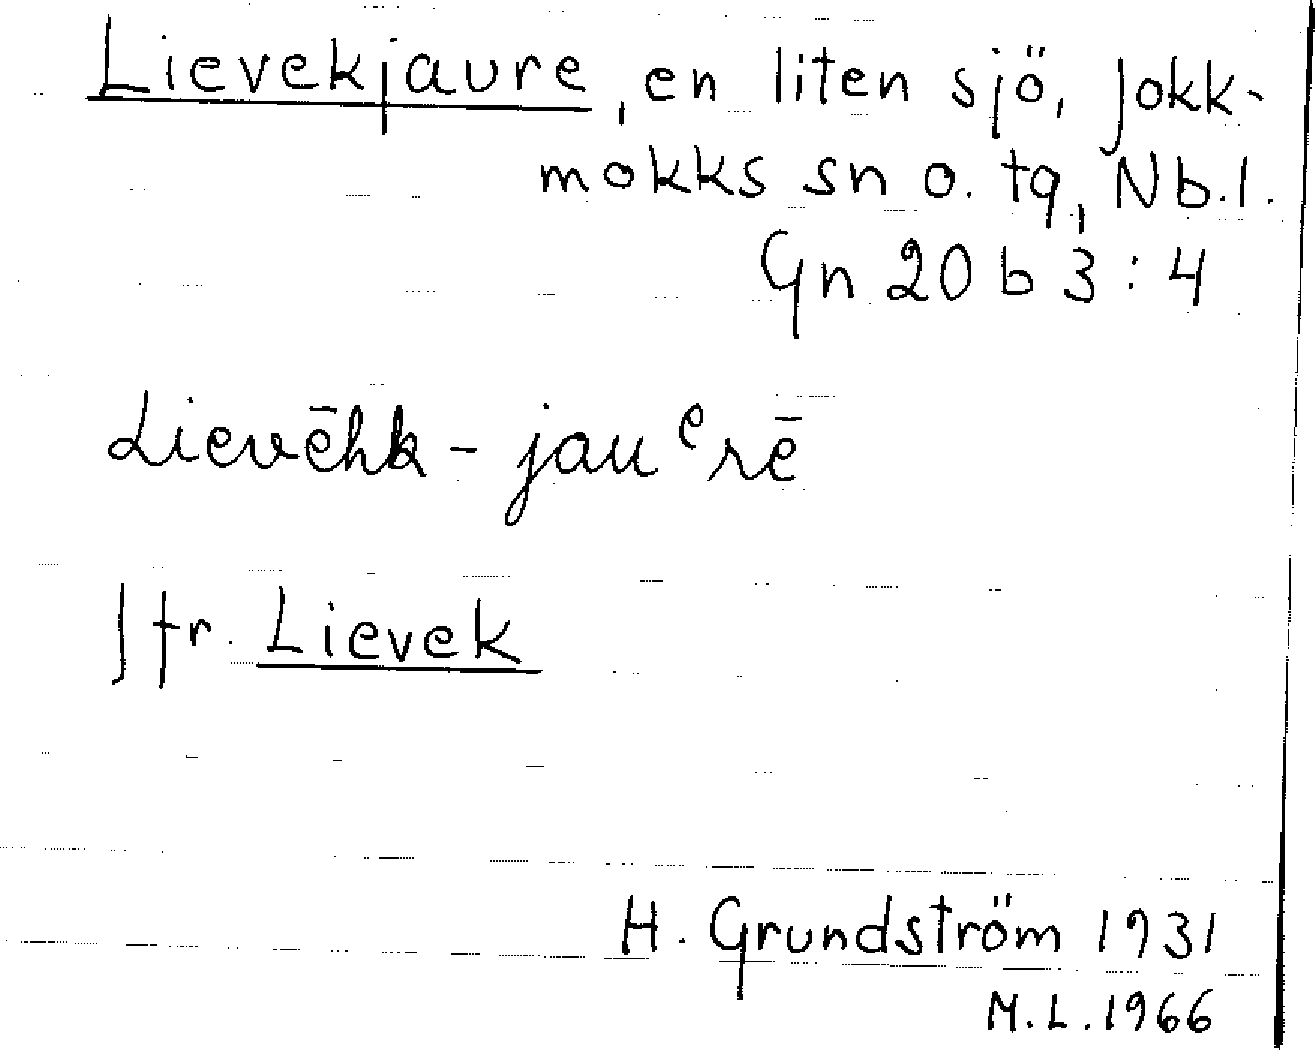 Lievekjaure, en liten sjö, Jokk-
mokks sn o. tg, Nb.l.
Gn 20 b 3:4
Lievēhk-jauᵉrē
Jfr. Lievek
H. Grundström 1931
M.L. 1966